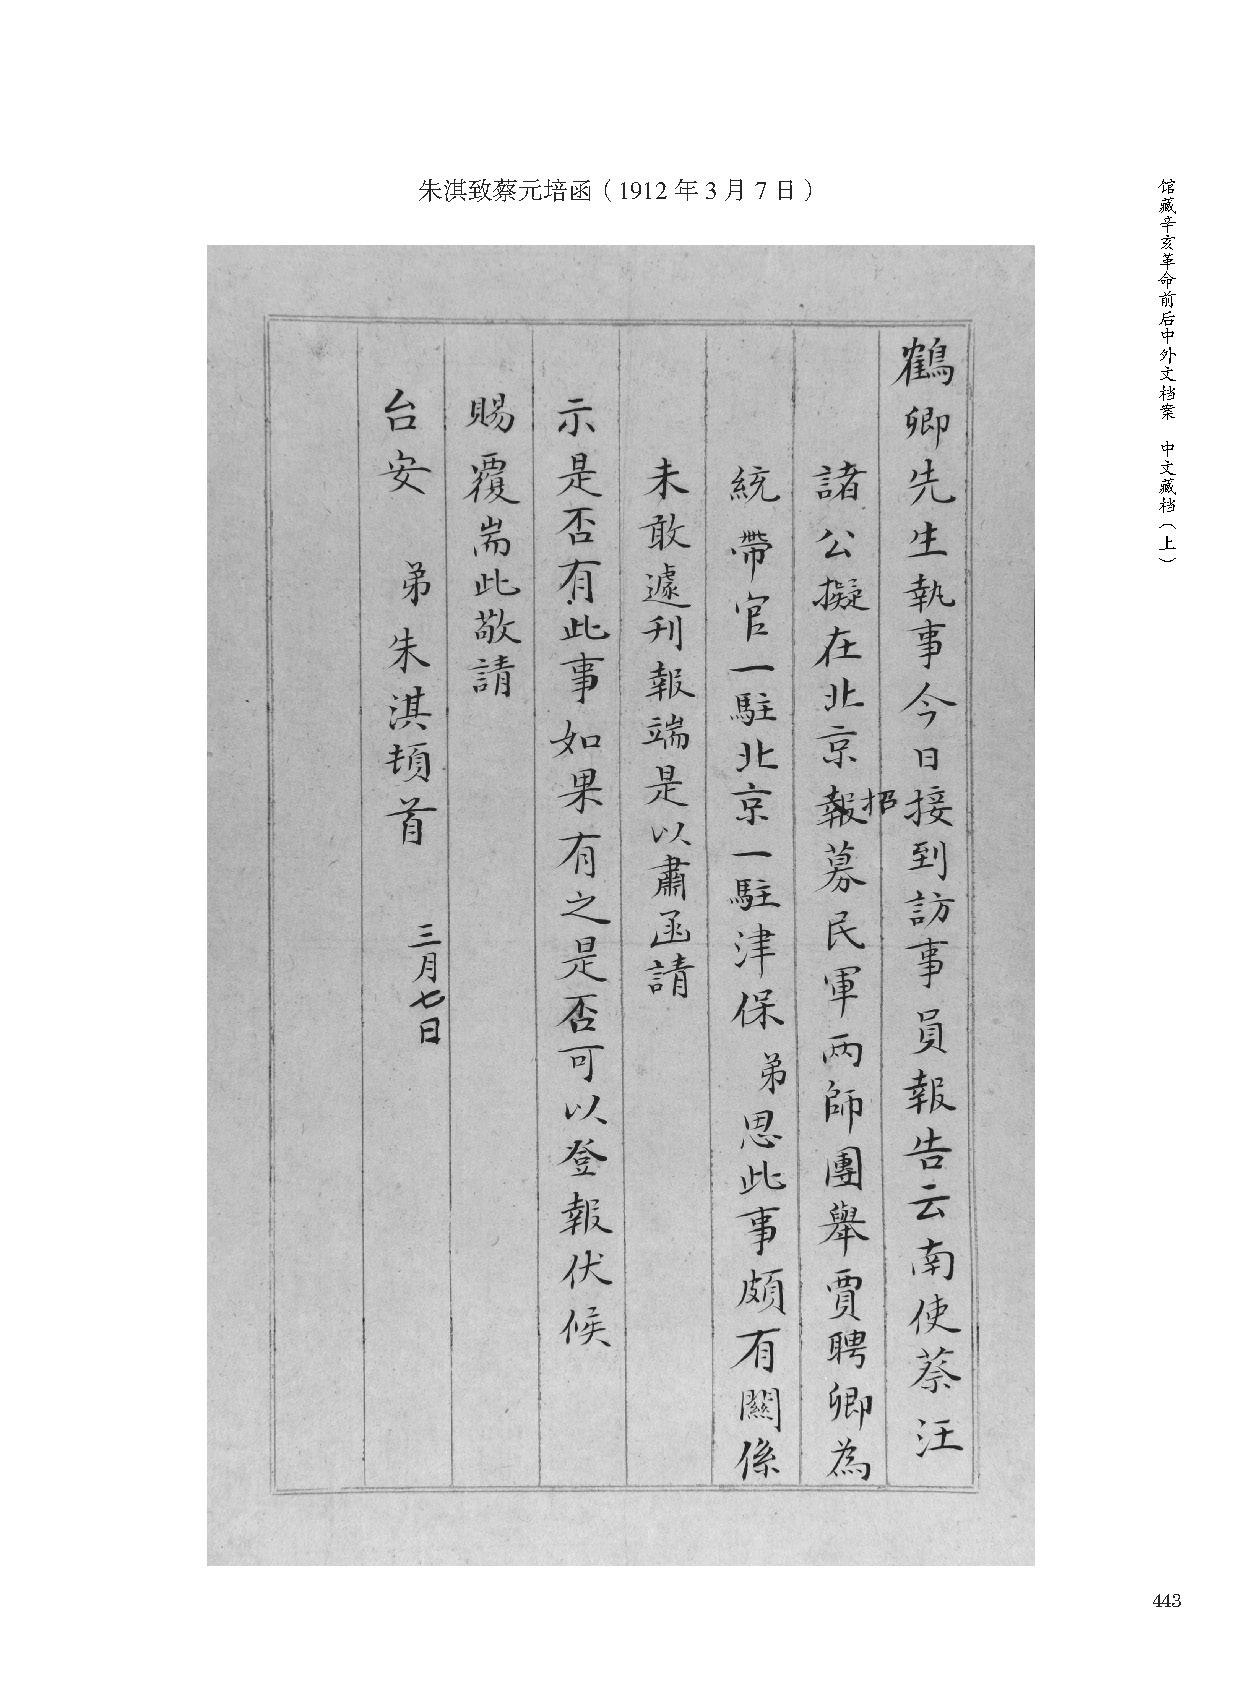 朱淇致蔡元培函（1912 年 3 月 7 日）
馆藏辛亥革命前后中外文档案 中文藏档（上）
鶴卿先生執事今日接到訪事員報告云南使蔡汪
諸公擬在北京報招募民軍兩師團舉賈聘卿為
統帶官一駐北京一駐津保弟思此事頗有關係
未敢遽刊報端是以肅函請
示是否有此事如果有之是否可以登報伏候
賜覆耑此敬請
台安 弟朱淇頓首 三月七日
443